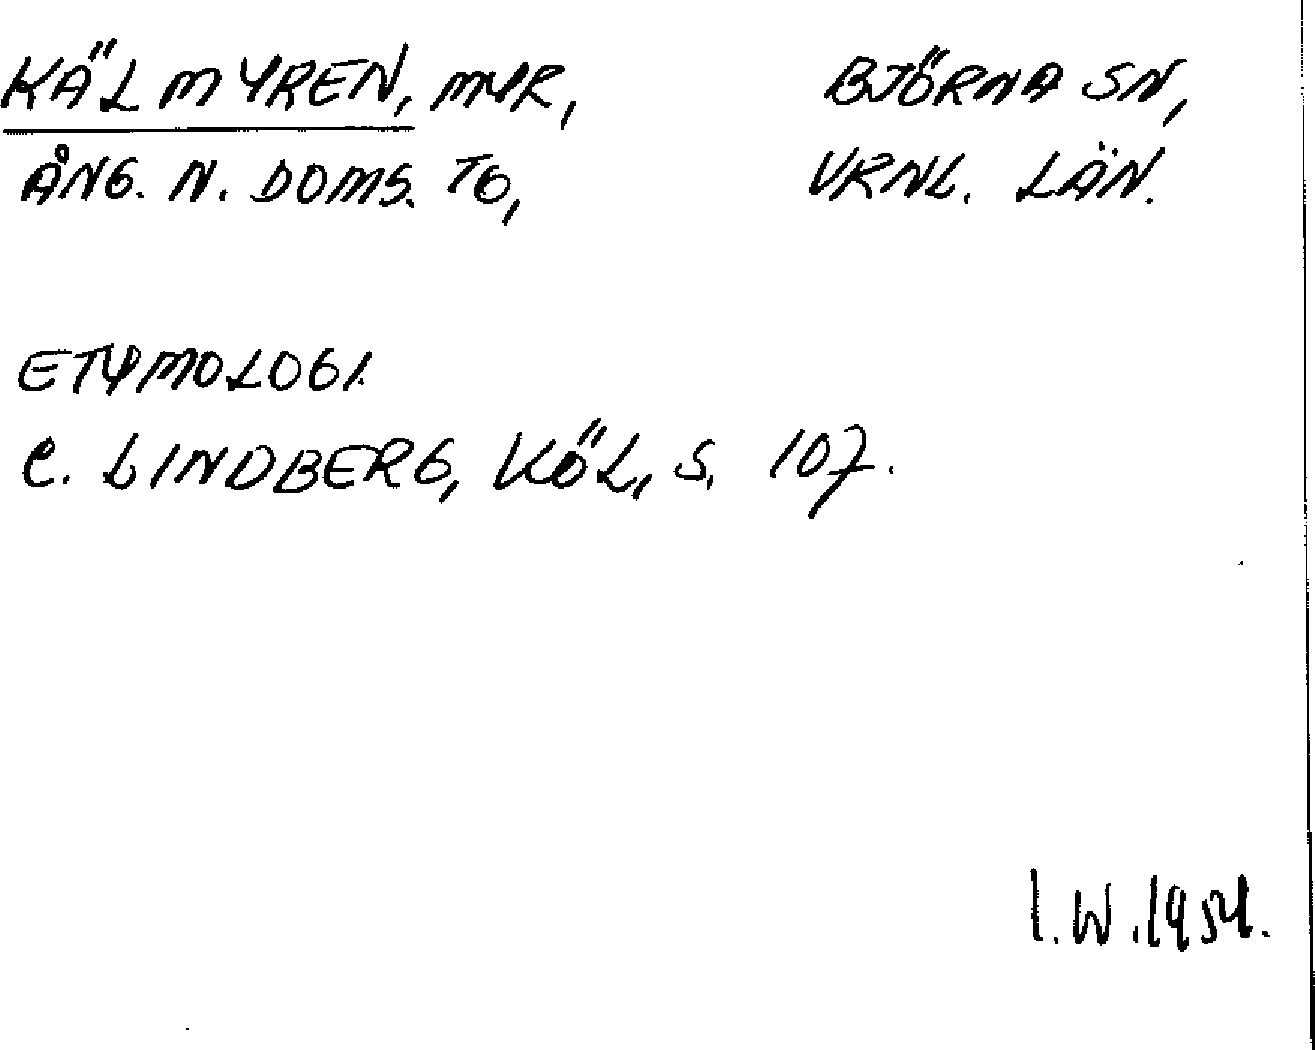 KÄLMYREN, MYR, BJÖRNA SN,
ÅNG. N. DOMS. TG, VRNL. LÄN.
ETYMOLOGI.
C. LINDBERG, KÖL, S. 107.
I.W.1954.